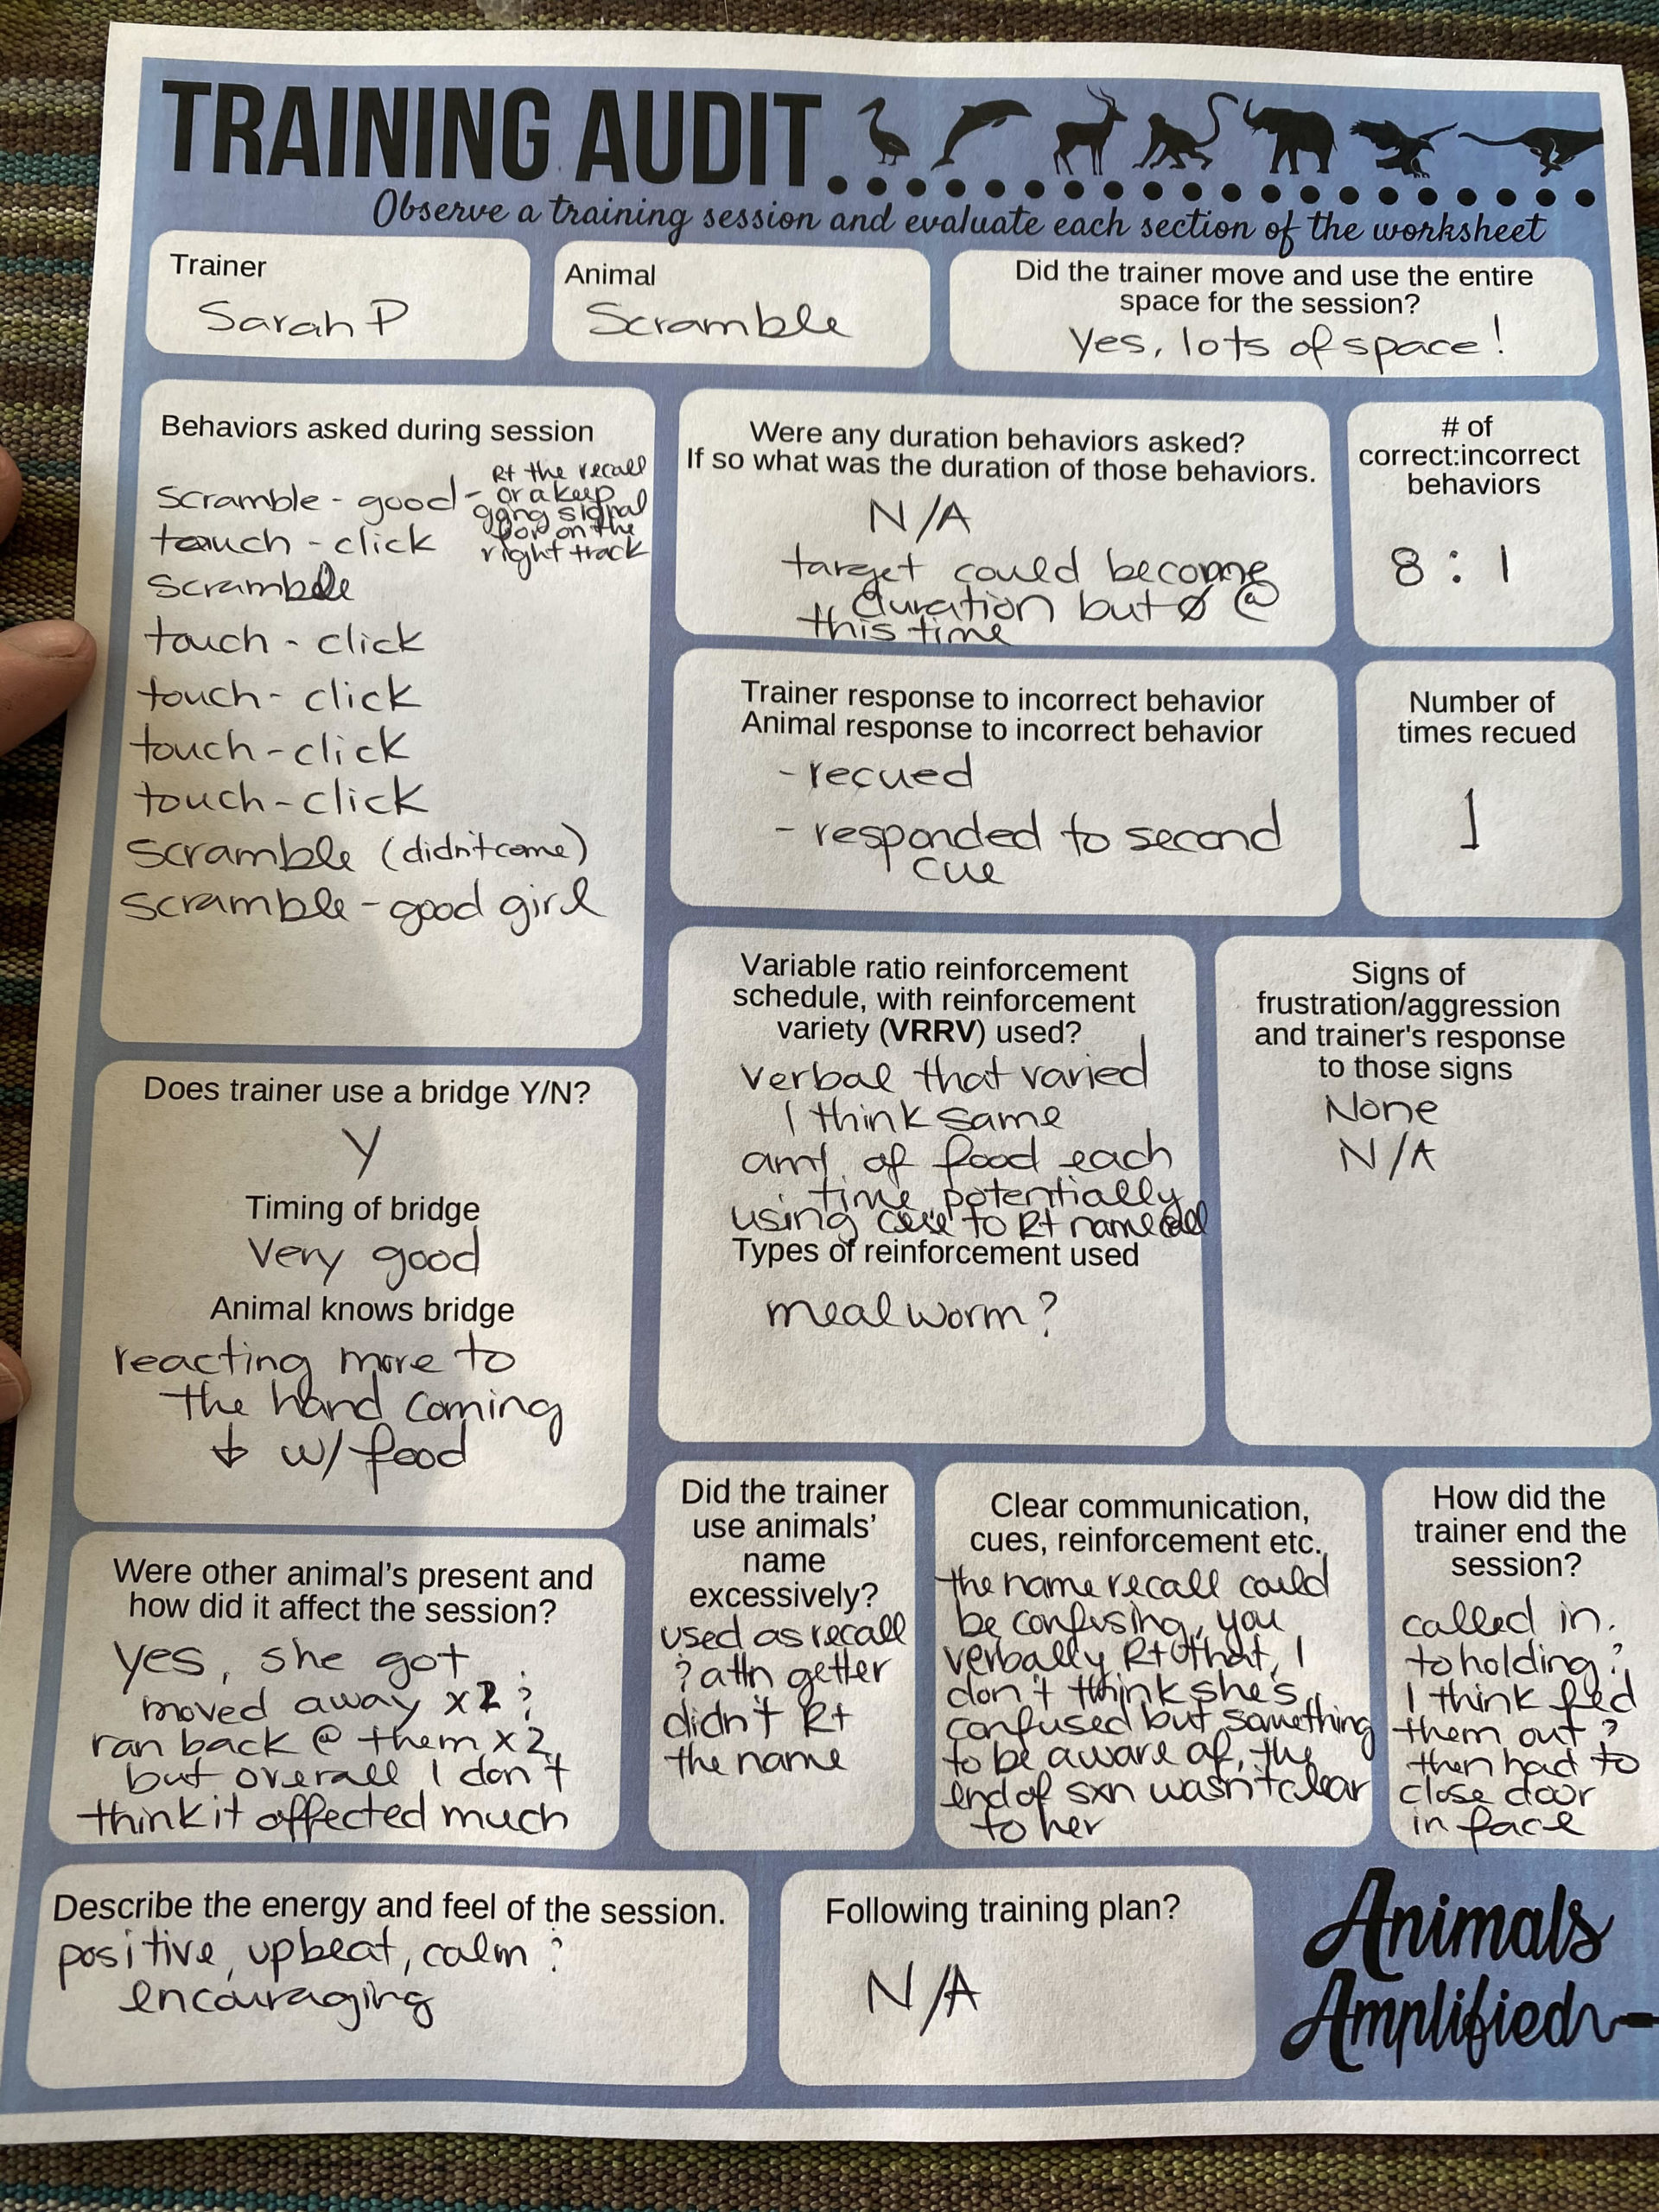 TRAINING AUDIT
Observe a training session and evaluate each section of the worksheet
Trainer
Sarah P
Animal
Scramble
Did the trainer move and use the entire
space for the session?
Yes, lots of space!
Behaviors asked during session
Scramble - good - R+ the recall
or a keep
going signal
for on the
right track
touch - click
Scramble
touch - click
touch - click
touch - click
touch - click
Scramble (didn't come)
Scramble - good girl
Were any duration behaviors asked?
If so what was the duration of those behaviors.
N/A
target could become
duration but Ø @
this time
# of
correct:incorrect
behaviors
8 : 1
Trainer response to incorrect behavior
Animal response to incorrect behavior
- recued
- responded to second
cue
Number of
times recued
1
Does trainer use a bridge Y/N?
Y
Timing of bridge
Very good
Animal knows bridge
reacting more to
the hand coming
↓ w/ food
Variable ratio reinforcement
schedule, with reinforcement
variety (VRRV) used?
Verbal that varied
I think same
amt. of food each
time potentially
using cue to R+ name call
Types of reinforcement used
mealworm?
Signs of
frustration/aggression
and trainer's response
to those signs
None
N/A
Were other animal's present and
how did it affect the session?
yes, she got
moved away x2 ;
ran back @ them x2,
but overall I don't
think it affected much
Did the trainer
use animals'
name
excessively?
used as recall
? attn getter
didn't R+
the name
Clear communication,
cues, reinforcement etc.
the name recall could
be confusing, you
verbally R+ that, I
don't think she's
confused but something
to be aware of, the
end of sxn wasn't clear
to her
How did the
trainer end the
session?
called in.
to holding?
I think fed
them out?
then had to
close door
in face
Describe the energy and feel of the session.
positive, upbeat, calm ;
encouraging
Following training plan?
N/A
Animals
Amplified